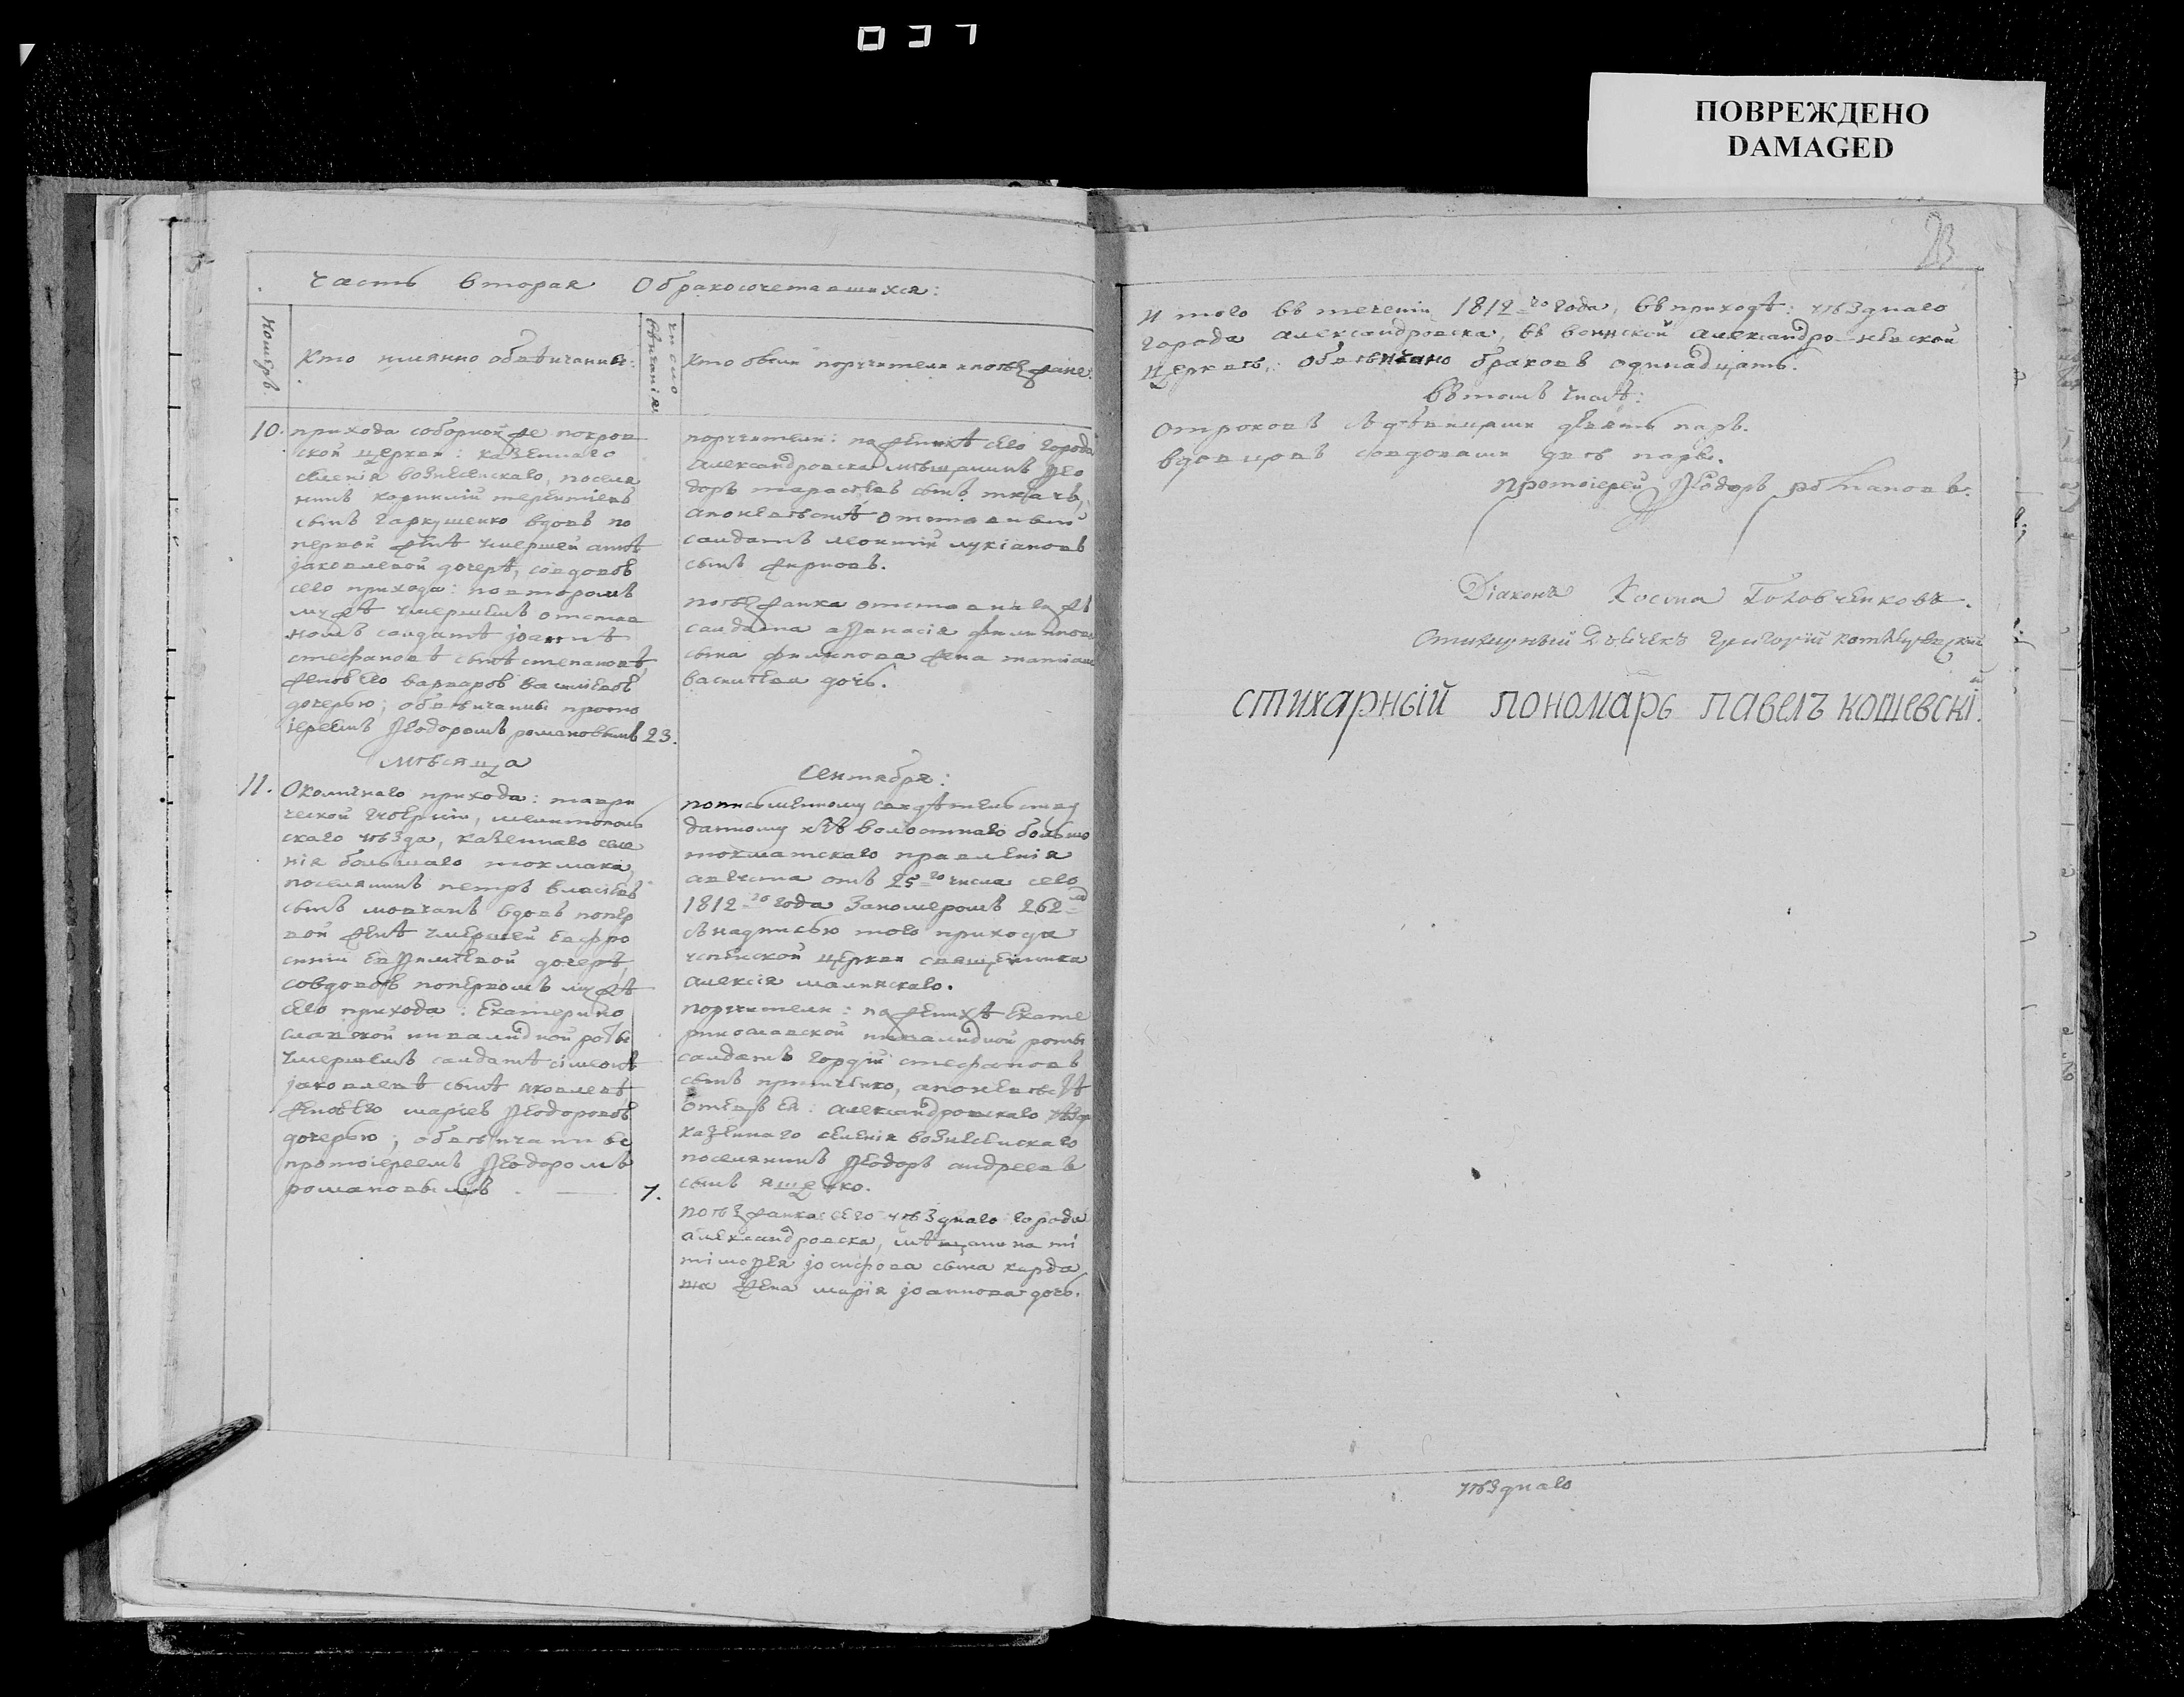 037
ПОВРЕЖДЕНО
DAMAGED
Часть вторая Обракосочетавшихся:
Номеръ.
Кто имянно обвѣнчаны:
число венчанія
Кто были поручители и поѣзжане:
10.
прихода соборной же покров
ской церкви: казеннаго
селенія вознесенскаго, поселя
нинъ корнилій терентіевъ
сынъ гаркушенко вдовъ по
первой женѣ умершей аннѣ
јаковлевой дочерѣ, совдовою
сего прихода: повторомъ
мужѣ умершемъ отстав
номъ солдатѣ јоаннѣ
стефановѣ сынѣ степановѣ,
женою его варварою василіевою
дочерью; обвѣнчаны прото
іереемъ Ѳеодоромъ романовымъ 23.
поручители: по женихѣ сего города
александровска мѣщанинъ Ѳео
доръ тарасіевъ сынъ ткачь,
а по невѣстѣ отставный
салдатъ леонтій лукіановъ
сынъ жирновъ.
поѣзжанка отставнаго
салдата аѲанасія филиппова
сына филипова жена татіана
василіева дочь.
Мѣсяца
Сентября:
11.
Околичнаго прихода: таври
ческой губерніи, мелитополь
скаго уѣзда, казеннаго селе
нія большаго токмака,
поселянинъ петръ власіевъ
сынъ мовчанъ вдовъ попер
вой женѣ умершей евфро
синіи евѲиміевой дочерѣ,
совдовою попервомъ мужѣ
сего прихода: Екатерино
славской инвалидной роты
умершемъ салдатѣ сімеонѣ
јаковлевѣ сынѣ яковлевѣ,
женою его маріею Ѳеодоровою
дочерью; обвѣнчаны
протоіереемъ Ѳеодоромъ
романовымъ 7.
пописьменному свидѣтельству
данному изъ волостнаго большо
токматскаго правленія
августа отъ 25=го числа сего
1812=го года Заномеромъ 262=
съ надписью того прихода
успенской церкви священника
алексія малинскаго.
поручители: по женихѣ Екате
ринославской инвалидной роты
салдатъ гордій стефановъ
сынъ притченко, а по невѣстѣ
отецъ ея: александровскаго уѣзда
казеннаго селенія вознесенскаго
поселянинъ Ѳеодоръ андреевъ
сынъ ященко.
поѣзжанка сего уѣзднаго города
александровска, мѣщанина ти
тімоѲея јосифова сына карда
жена марія јоаннова дочь.
23
И того въ теченіи 1812=го года, въ приходѣ: уѣзднаго
города александровска, въ воинской александро-невской
церквѣ,: обвѣнчано браковъ одинадцать.
въ томъ числѣ:
отроковъ съ дѣвицами девять паръ.
вдовцовъ совдовами двѣ пары.
Протоіерей Ѳеодоръ романовъ.
Діаконъ Косма Головченковъ.
Стихарный Дьячекъ григорій
стихарный пономарь павелъ кошевскій.
уѣзднаго